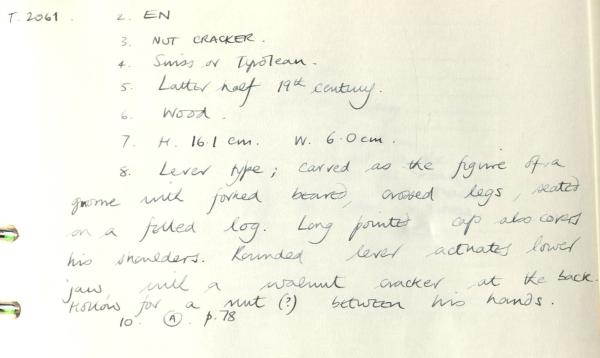 T. 2061. 2. EN
3. NUT CRACKER.
4. Swiss or Tyrolean.
5. Latter half 19th century.
6. Wood.
7. H. 16.1 cm. W. 6.0 cm.
8. Lever type; carved as the figure of a
gnome with forked beard, crossed legs, seated
on a felled log. Long pointed cap also covers
his shoulders. Rounded lever actuates lower
jaw with a walnut cracker at the back.
Hollow for a nut (?) between his hands.
10. (A). p.78